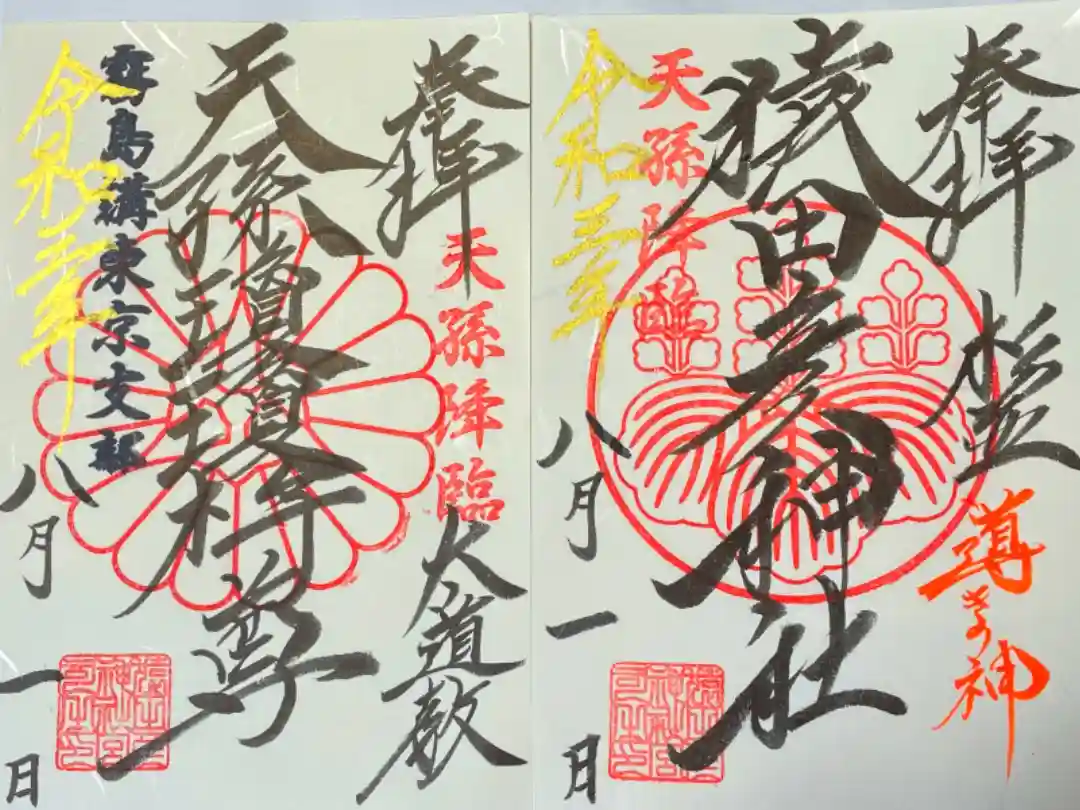 奉拝
杉並
導きの神
猿田彦神社
天孫降臨
令和三年
八月一日
奉拝
天孫降臨
大道教
天孫瓊瓊杵尊
霧島講東京支部
令和三年
八月一日